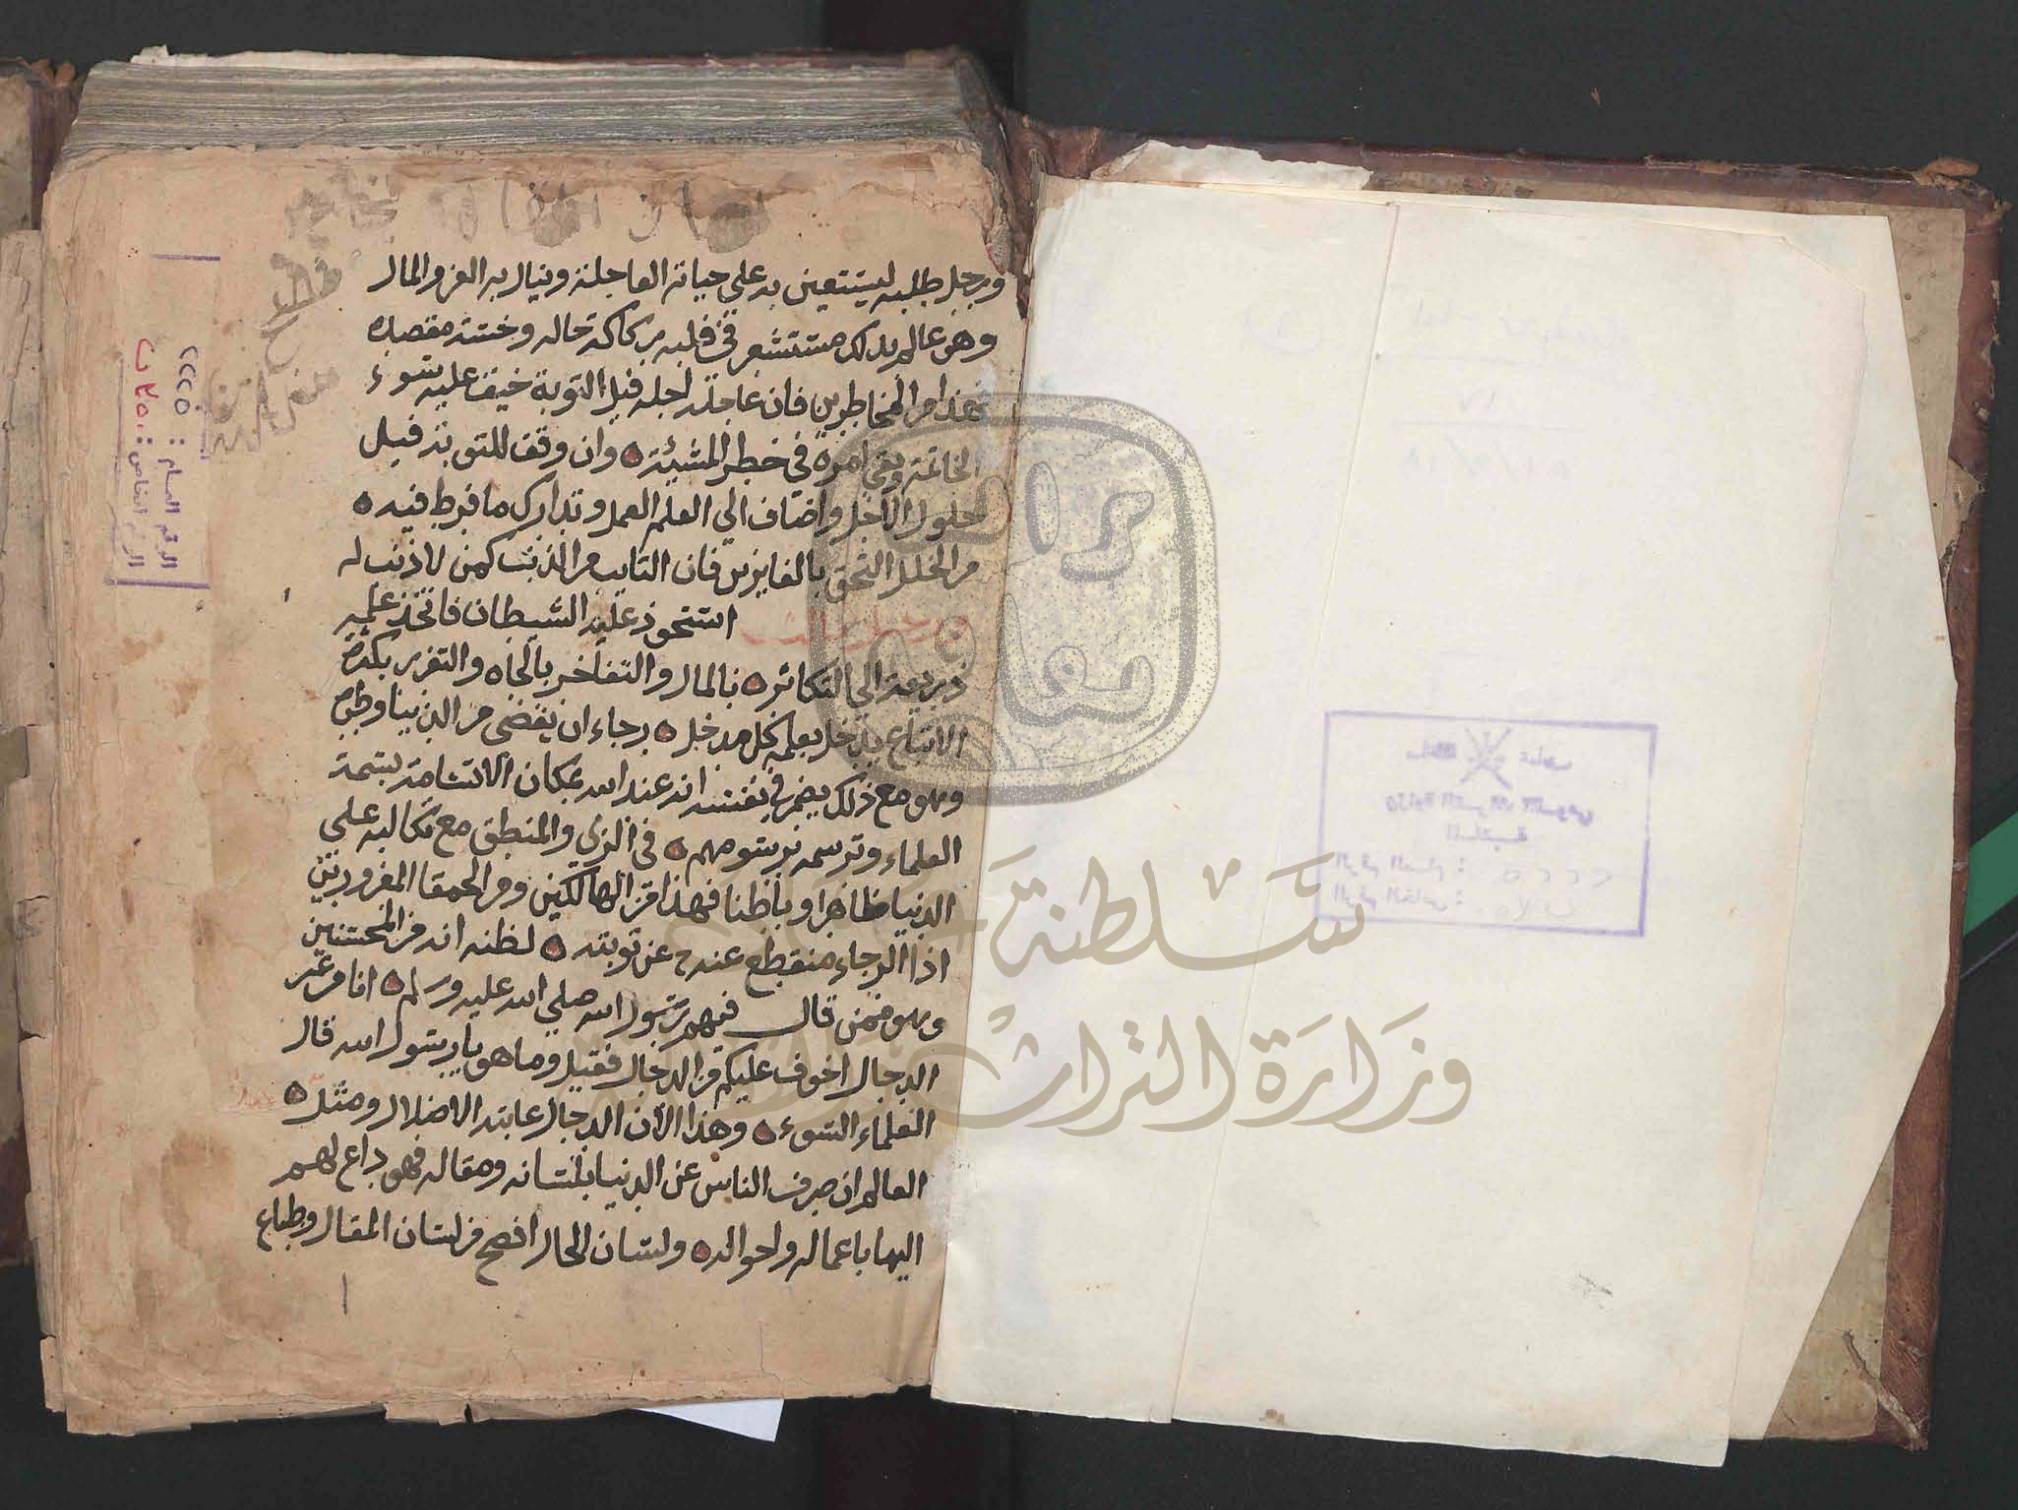 ورجل طلبه ليستعين به على حياته العاجلة وينال به العز والمال
وهو عالم بذلك مستشعر في قلبه ركاكة حاله وخسة مقصده
فهذا من المخاطرين فان عاجله اجله قبل التوبة خيف عليه سوء
الخاتمة وبقى امره في خطر المشيئة ه وان وفق للتوبة قبل
حلول الاجل واضاف الي العلم العمل وتدارك ما فرط فيه ه
من الخلل التحق بالفايزين فان التايب من الذنب كمن لا ذنب له
ورجل ثالث استحوذ عليه الشيطان فاتخذ علمه
ذريعة الي التكاثر ه بالمال والتفاخر بالجاه والتعزز بكثرة
الاتباع يدخل بعلمه كل مدخل ه رجاء ان يقضى من الدنيا وطره
وهو مع ذلك يضمر في نفسه انه عند الله بمكان لاتسامه بسمة
العلماء وترسمه برسومهم ه في الزي والمنطق مع تكالبه على
الدنيا ظاهرا وباطنا فهذا من الهالكين ومن الحمقا المغرورين
اذ الرجاء منقطع عنه عن توبته ه لظنه انه من المحسنين
وهو ممن قال فيهم رسول الله صلي الله عليه وسلم ه انا من غير
الدجال اخوف عليكم من الدجال فقيل وما هو يا رسول الله قال
العلماء السوء ه وهذا الان الدجال غايته الاضلال ومثل ه
العالم ان صرف الناس عن الدنيا بلسانه ومقاله فهو داع لهم
اليها باعماله واحواله ه ولسان الحال افصح من لسان المقال وطباع
الرقم العام : ٢٢٢٥
الرقم الخاص :
سلطنة عمان
وزارة التراث